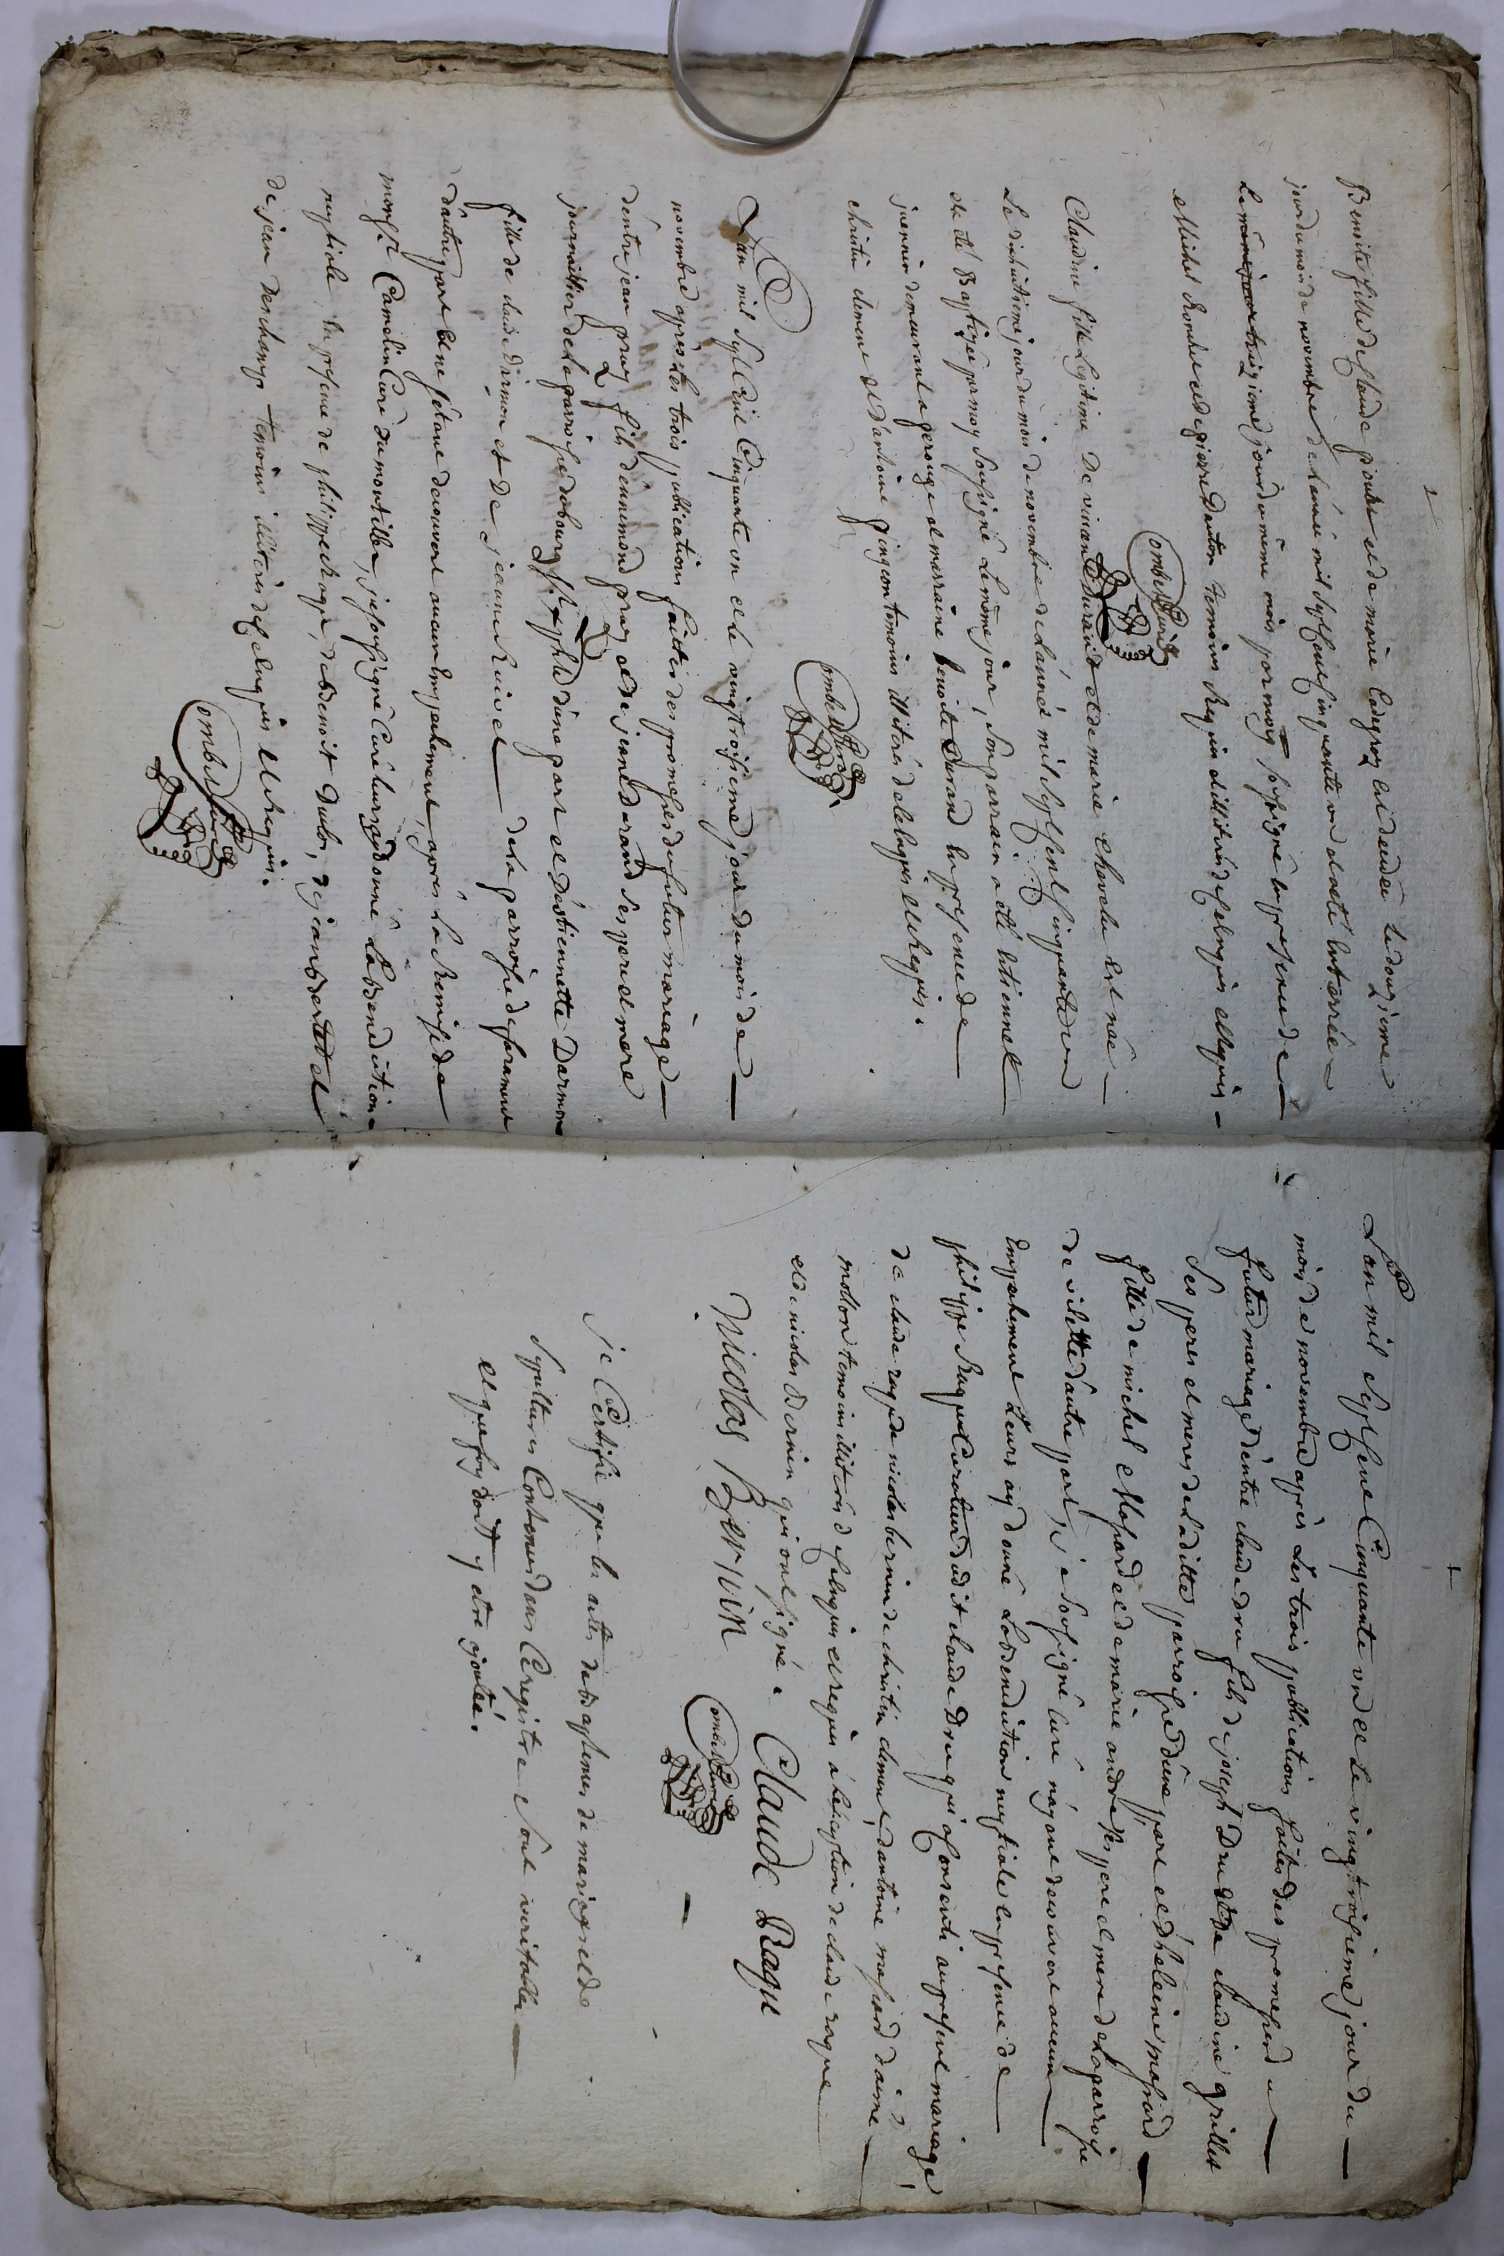 Benoite fille de Claude et de marie est decedée le douzieme
jour du mois de novembre de l'année mil sept cent cinquante un et a été enterrée
le même jour treizieme jour du même mois par moy soussigné en presence de
Michel et de pierre temoins Requis et illiterés Requis
ombet Curé
Claudine fille legitime de vivian Durand et de marie chevalu est née
le dixhuitieme jour du mois de novembre de l'année mil sept cent cinquante un
et a été Baptizée par moy soussigné le même jour, son parrain a été étienne
juennin demeurant a perouge et marraine benoite Durand en presence de
christin clement et d'antoine gingeon temoins illiterés et Requis.
ombet Curé
L'an mil sept Cent Cinquante un et le vingt troisieme jour du mois de
novembre après les trois publications faites des promesses du futur mariage
d'entre jean gruy fils d'ennemond gruy et de jeane durand ses pere et mere
journallier de la parroisse du bourg st christophle d'une part et d'estiennette Darmon
fille de claude darmon et de jeanne Ruivet de la parroisse de faramant
d'autre part et ne s'étant decouvert aucun Empechement, après la Remise de
monsr Camelin Curé du montellier, je soussigné Curé leur ay donné la Benediction
nuptiale en presence de philippe Rague, de Benoit Dubo, de jean Bertet et
de jean Deschamp temoins illiterés de Chalages et Requis.
ombet Curé
L'an mil sept Cent Cinquante un et le vingt troisieme jour du
mois de novembre après les trois publications faites des promesses du
futur mariage d'entre claude dru fils de joseph Dru et de claudine grillet
ses peres et meres de la ditte parroisse d'une part et d'heleine massard
fille de michel Massard et de marie andré ses pere et mere de la parroisse
de vilette d'autre part, je soussigné curé n'ayant decouvert aucun
Empechement leurs ay donné la Benediction nuptiale en presence de
philippe Rague Curateur dudit claude Dru qui a Consenti au present mariage
de claude rague de nicolas bernin de christin clement, d'antoine massard d'aimé
mollon temoins illiterés et requis à l'exception de claude rague
et de nicolas Bernin qui ont signé.
Nicolas Bernin Claude Rague
ombet Curé
Je Certifie que les actes de Baptemes de mariages et de
sepultures Contenus dans Ce registre sont veritables
et que foy doit y etre ajoutée.